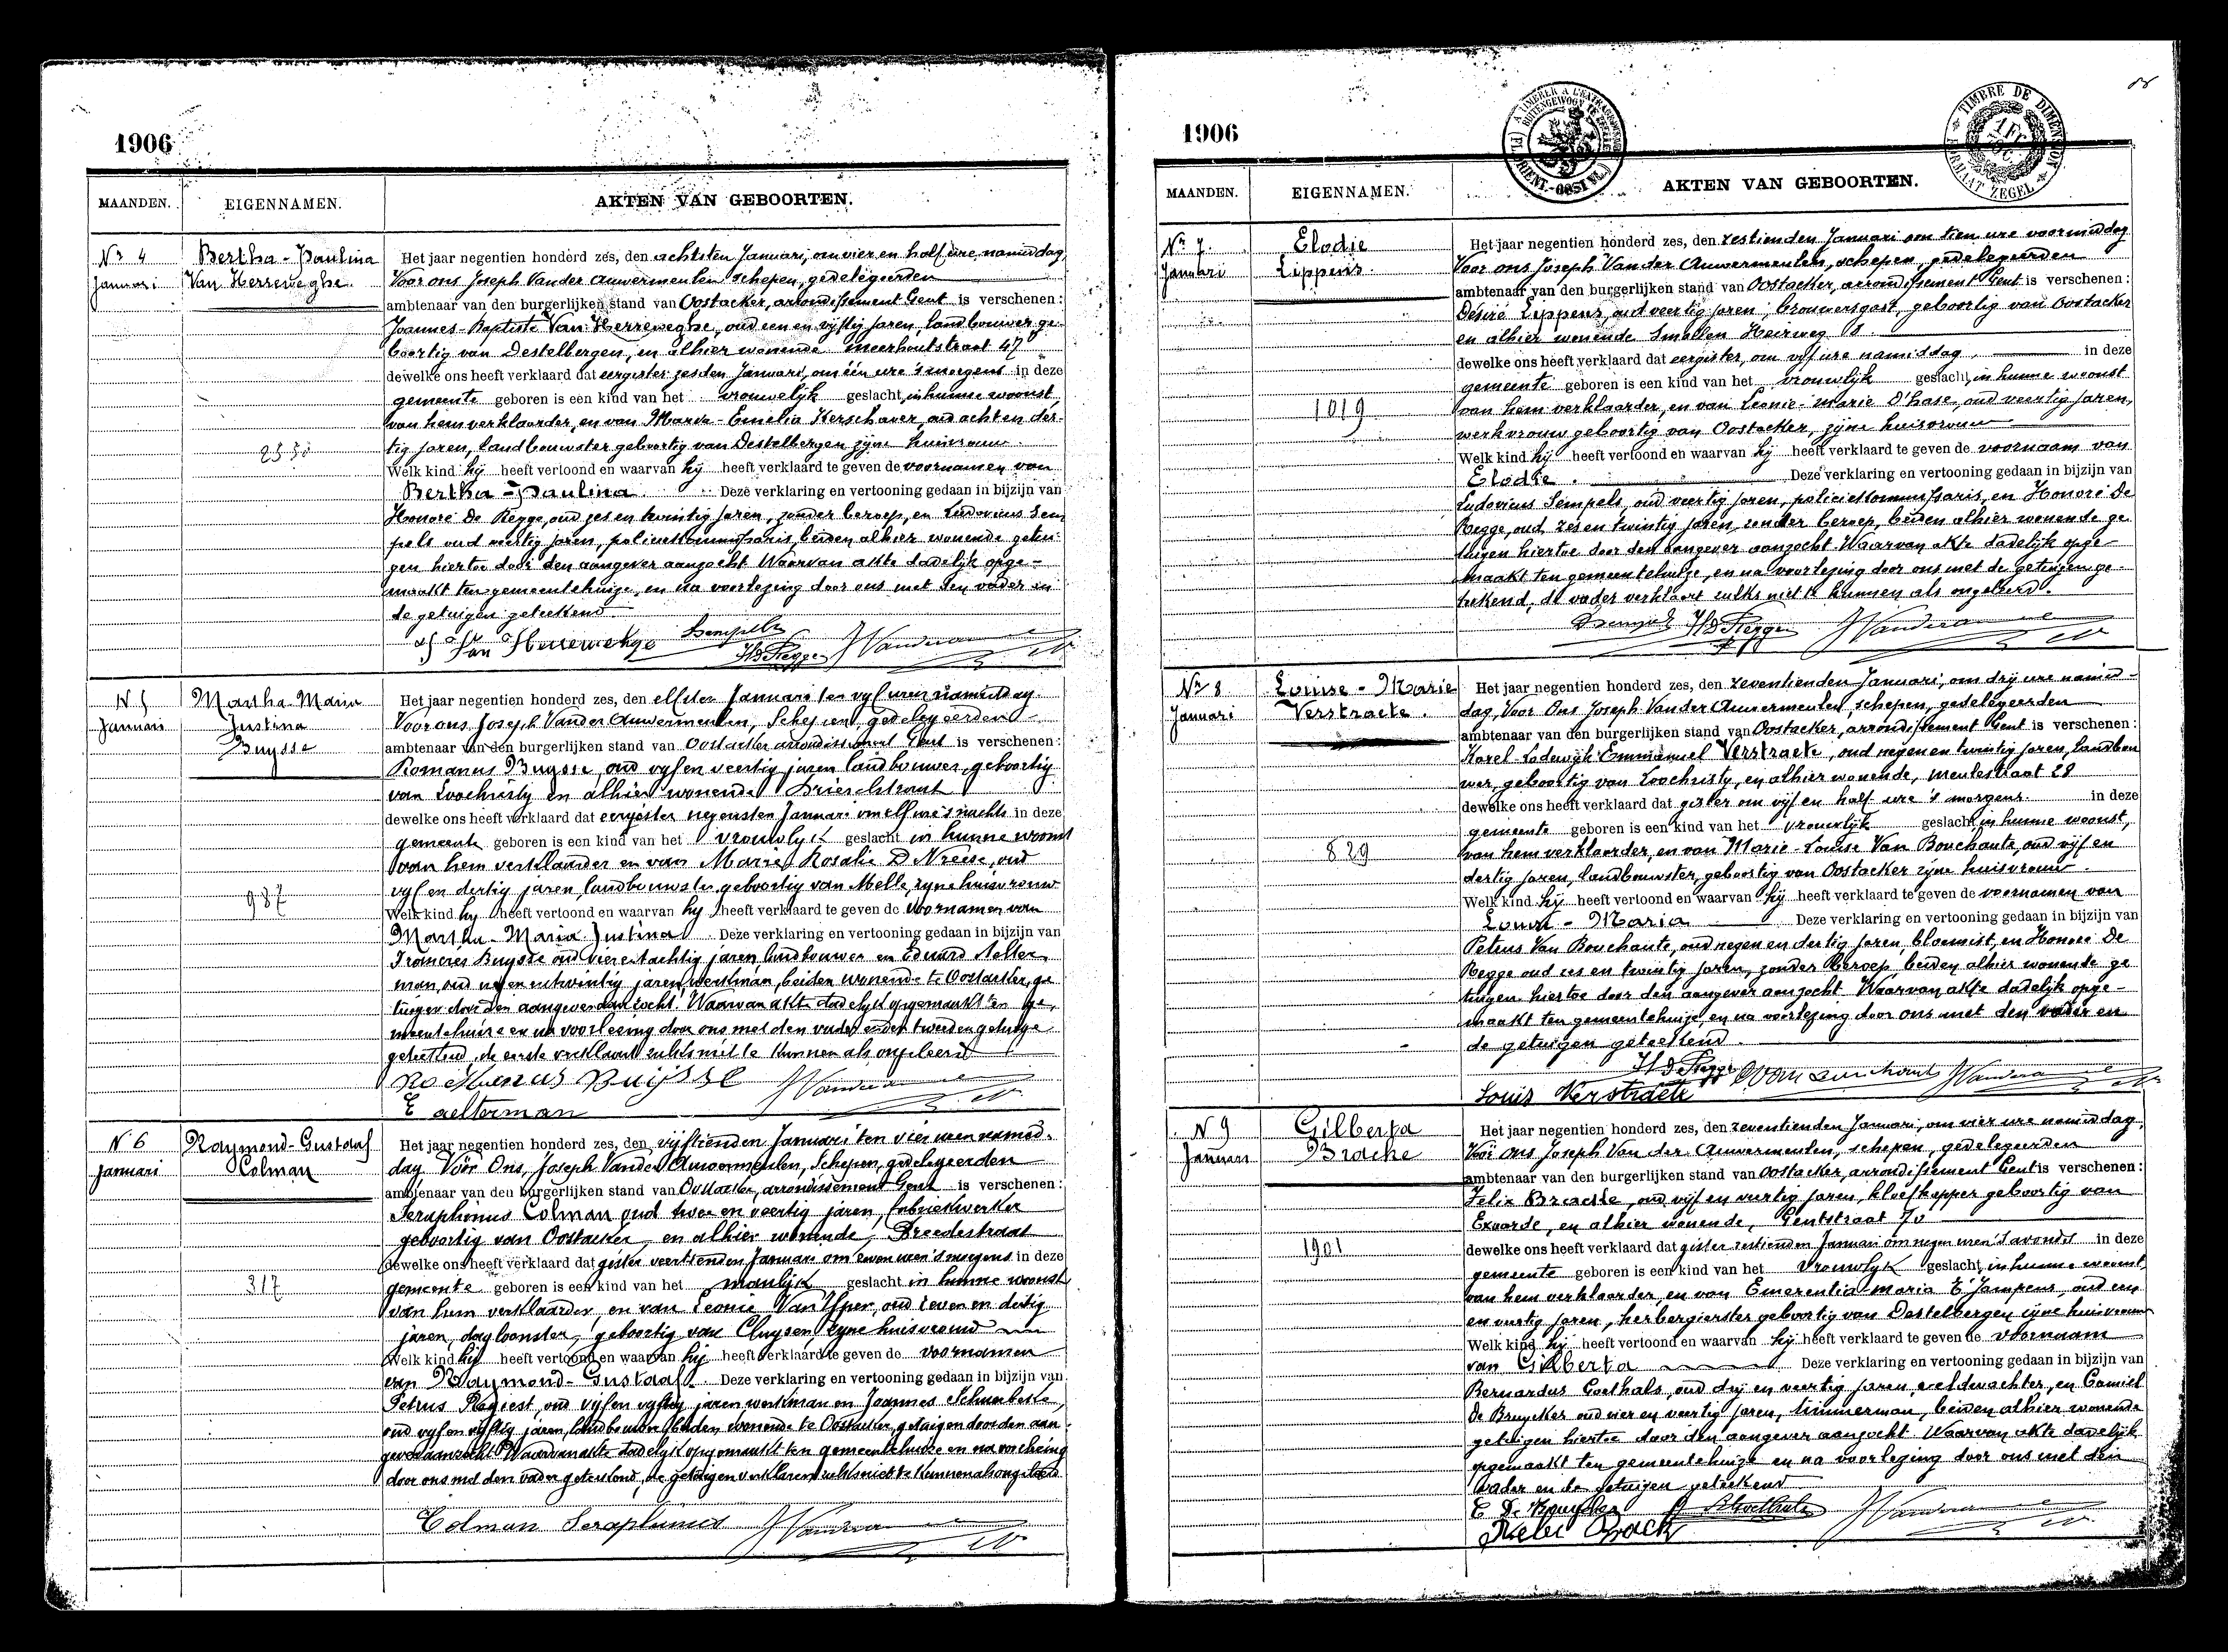 1906
MAANDEN. EIGENNAMEN. AKTEN VAN GEBOORTEN.
Nr 4 Bertha-Paulina
Januari Van Herreweghe.
Het jaar negentien honderd zes, den achtsten Januari, om vier en half ure, namiddag,
Voor ons Joseph Vander Auwermeulen schepen, gedelegeerden
ambtenaar van den burgerlijken stand van Oostacker, arrondissement Gent is verschenen:
Joannes-Baptiste Van Herreweghe, oud een en vijftig jaren, landbouwer ge-
boortig van Destelbergen, en alhier wonende Meerhoutstraat 47
dewelke ons heeft verklaard dat eergister zesden Januari, om één ure 's morgens in deze
gemeente geboren is een kind van het vrouwelijk geslacht, in hunne woonst,
van hem verklaarder, en van Maria-Emelia Kerschaver, oud acht en der-
tig jaren, landbouwster geboortig van Destelbergen zijne huisvrouw.
Welk kind hij heeft vertoond en waarvan hij heeft verklaard te geven de voornamen van
Bertha-Paulina. Deze verklaring en vertooning gedaan in bijzijn van
Honoré De Regge, oud zes en twintig jaren, zonder beroep, en Ludovicus Sem
pels oud veertig jaren, policiekommissaris, beiden alhier wonende getui-
gen hiertoe door den aangever aanzocht Waarvan akte dadelijk opge-
maakt ten gemeentehuize, en na voorlezing door ons met den vader en
de getuigen geteekend
Van Herreweghe Sempels
HDeRegge JVanderau
N 5 Martha Maria
Januari Justina
Buysse
987
Het jaar negentien honderd zes, den elfden Januari ten vyf uren namiddag.
Voor ons Joseph Vander Auwermeulen, Schepen gedelegeerden
ambtenaar van den burgerlijken stand van Oostacker arrondissement Gent is verschenen:
Romanus Buysse, oud vyf en veertig jaren landbouwer, geboortig
van Loochristy en alhier wonende Drieschstraat
dewelke ons heeft verklaard dat eergister negensten Januari om elf ure 's nachts in deze
gemeente geboren is een kind van het vrouwlyk geslacht in hunne woonst
van hem verklaarder en van Marie Rosalie D Neese, oud
vyf en dertig jaren, landbouwster geboortig van Melle, zyne huisvrouw
Welk kind hy heeft vertoond en waarvan hy heeft verklaard te geven de voornamen van
Martha-Maria Justina Deze verklaring en vertooning gedaan in bijzijn van
Francies Buysse oud vier en tachtig jaren landbouwer en Eduard Aelter
man, oud en twintig jaren, werkman, beiden wonende te Oostacker, ge
tuigen door den aangever aanzocht Waarvan akte dadelyk opgemaakt ten ge
meentehuize en na voorleezing door ons met den vader en den tweeden getuige
geteekend, de eerste verklaart zulks niet te kunnen als ongeleerd
Romanus Buijsse JVanderau
E aelterman
N 6 Raymond-Gustaaf
Januari Colman
317
Het jaar negentien honderd zes, den vijftienden Januari ten vier uren namid-
dag Voor Ons, Joseph Vander Auwermeulen, Schepen, gedelegeerden
ambtenaar van den burgerlijken stand van Oostacker, arrondissement Gent is verschenen:
Seraphinus Colman oud twee en veertig jaren, fabriekwerker
geboortig van Oostacker en alhier wonende, Breedestraat
dewelke ons heeft verklaard dat gister veertienden Januari om zeven uren 's morgens in deze
gemeente geboren is een kind van het manlijk geslacht in hunne woonst
van hem verklaarder, en van Leonie Van, oud zeven en dertig
jaren, dagloonster, geboortig van Cluysen, zyne huisvrouw
Welk kind hij heeft vertoond en waarvan hij heeft verklaard te geven de voornamen
van Raymond-Gustaaf. Deze verklaring en vertooning gedaan in bijzijn van
Petrus Rogiest, oud vijf en vyftig jaren werkman en Joannes
oud vyf en vyftig jaren, landbouwer beiden wonende te Oostacker, getuigen door den aan-
gever aanzocht Waarvan akte dadelyk opgemaakt ten gemeentehuize en na voorlezing
door ons met den vader geteekend, de getuigen verklaren zulks niet te kunnen als ongeleerd
Colman Seraphinus JVanderau
1906
TIMBRE DE DIMENSION
FORMAAT ZEGEL
MAANDEN. EIGENNAMEN. AKTEN VAN GEBOORTEN.
Nr 7. Elodie
Januari Lippens.
1019
Het jaar negentien honderd zes, den zestienden Januari om tien ure voormiddag
Voor ons Joseph Van der Auwermeulen, schepen, gedelegeerden
ambtenaar van den burgerlijken stand van Oostacker, arrondissement Gent is verschenen:
Désiré Lippens, oud veertig jaren, brouwersgast, geboortig van Oostacker
en alhier wonende Smallen Heirweg 8.
dewelke ons heeft verklaard dat eergister, om vijf ure namiddag, in deze
gemeente geboren is een kind van het vrouwlijk geslacht, in hunne woonst
van hem verklaarder, en van Leonie-Marie D'hase, oud veertig jaren,
werkvrouw geboortig van Oostacker, zijne huisvrouw
Welk kind hij heeft vertoond en waarvan hij heeft verklaard te geven de voornaam van
Elodie. Deze verklaring en vertooning gedaan in bijzijn van
Ludovicus Sempels, oud veertig jaren, policiekommissaris, en Honoré De
Regge, oud, zes en twintig jaren, zonder beroep, beiden alhier wonende ge-
tuigen hiertoe door den aangever aanzocht Waarvan akte dadelijk opge-
maakt ten gemeentehuize, en na voorlezing door ons met de getuigen ge-
teekend, de vader verklaart zulks niet te kunnen als ongeleerd.
Sempels HDeRegge JVanderau
Nr 8 Louise-Marie
Januari Verstraete.
829
Het jaar negentien honderd zes, den zeventienden Januari, om drij ure namid-
dag, Voor Ons Joseph Van der Auwermeulen, schepen, gedelegeerden
ambtenaar van den burgerlijken stand van Oostacker, arrondissement Gent is verschenen:
Karel-Lodewijk-Emmanuel Verstraete, oud negen en twintig jaren, landbou
wer, geboortig van Loochristy, en alhier wonende, Meulestraat 29
dewelke ons heeft verklaard dat gister om vijf en half ure 's morgens in deze
gemeente geboren is een kind van het vrouwlijk geslacht, in hunne woonst,
van hem verklaarder, en van Marie-Louise Van Bouchaute, oud vijf en
dertig jaren, landbouwster, geboortig van Oostacker zijne huisvrouw.
Welk kind hij heeft vertoond en waarvan hij heeft verklaard te geven de voornamen van
Louise-Maria Deze verklaring en vertooning gedaan in bijzijn van
Petrus Van Bouchaute, oud negen en dertig jaren, bloemist, en Honoré De
Regge oud zes en twintig jaren, zonder beroep, beiden alhier wonende ge
tuigen hiertoe door den aangever aanzocht Waarvan akte dadelijk opge-
maakt ten gemeentehuize, en na voorlezing door ons met den vader en
de getuigen geteekend.
HDeRegge JVanderau
Louis Verstraete
N 9 Gilberta
Januari Bracke
1901
Het jaar negentien honderd zes, den zeventienden Januari, om vier ure namiddag,
Voor ons Joseph Van der Auwermeulen, schepen, gedelegeerden
ambtenaar van den burgerlijken stand van Oostacker, arrondissement Gent is verschenen:
Felix Bracke, oud vijf en veertig jaren, kloefkapper geboortig van
Exaarde, en alhier wonende, Gentstraat 70
dewelke ons heeft verklaard dat gister zestienden Januari om negen uren 's avonds in deze
gemeente geboren is een kind van het vrouwlyk geslacht, in hunne woonst,
van hem verklaarder, en van Emerentia-Maria, oud een
en veertig jaren, herbergierster geboortig van Destelbergen, zijne huisvrouw
Welk kind hij heeft vertoond en waarvan hij heeft verklaard te geven de voornaam
van Gilberta Deze verklaring en vertooning gedaan in bijzijn van
Bernardus Goethals, oud drij en veertig jaren, veldwachter, en Camiel
De Bruycker oud vier en veertig jaren, timmerman, beiden alhier wonende
getuigen hiertoe door den aangever aanzocht Waarvan akte dadelijk
opgemaakt ten gemeentehuize en na voorlezing door ons met den
vader en de getuigen geteekend
C De Bruycker BGoethals JVanderau
Felix Brack